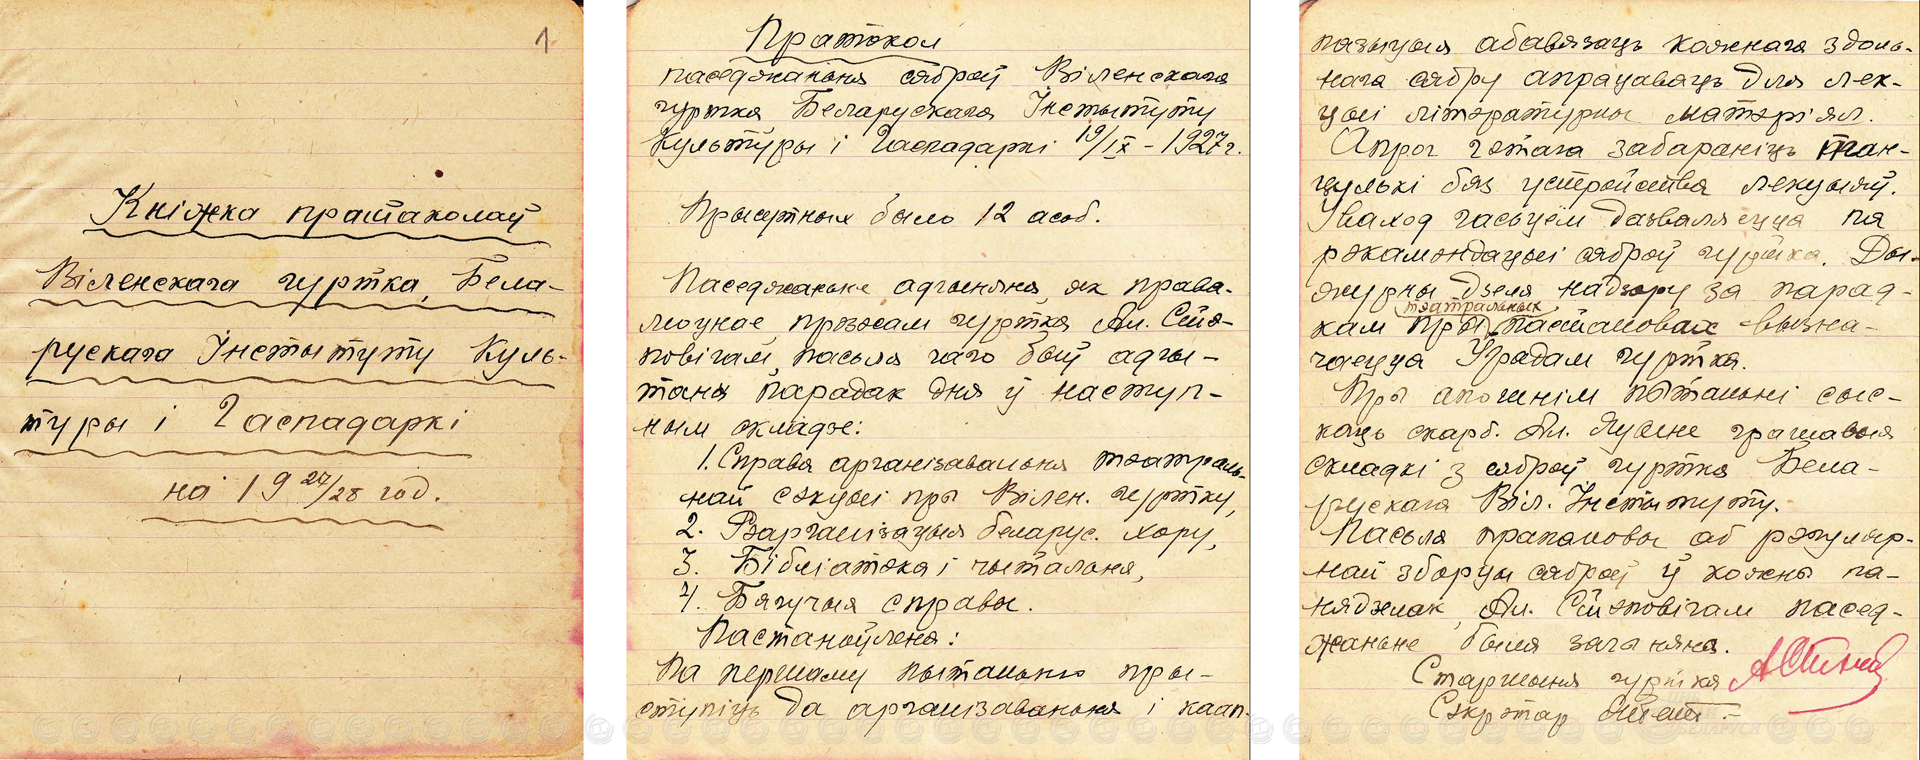 1
Кніжка пратаколаў
Віленскага гуртка, Бела-
рускага Інстытуту Куль-
туры і Гаспадаркі
на 1927/28 год.
Пратокол
паседжаньня сяброў Віленскага
гуртка Беларускага Інстытуту
Культуры і Гаспадаркі 19/IX – 1927г.
Прысутных было 12 асоб.
Паседжаньне адчынена, як права-
моцнае, прэзэсам гуртка Ал. Сцэ-
повічам, пасьля чаго быў адчы-
таны парадак дня ў наступ-
ным складзе:
1. Справа арганізаваньня тэатраль-
най сэкцыі пры Вілен. гуртку,
2. Рэарганізацыя беларус. хору,
3. Бібліатэка і чытальня,
4. Бягучыя справы.
Пастаноўлена:
Па першаму пытаньню пры-
ступіць да арганізаваньня і каап-
пазыцыя абавязаць кожнага здоль-
нага сябру апрацаваць для лек-
цыі літэратурны матэр'ял.
Апроч гэтага забараніць тан-
цулькі бяз устройства лекцыяў.
Уваход гасьцём дазваляецца па
рэкамэндацыі сяброў гуртка. Ды-
журны дзеля надзору за парад-
кам пры тэатральных пастановах вызна-
чаецца Урадам гуртка.
Пры апошнім пытаньні сыс-
каць скарб. Ал. грашавыя
складкі з сяброў гуртка Бела-
рускага Віл. Інстытуту.
Пасьля прапановы аб рэгуляр-
най зборцы сяброў ў кожны па-
нядзелак, Ал. Сцэповічам пасед-
жаньне была зачынена.
Старшыня гуртка
Сэкрэтар